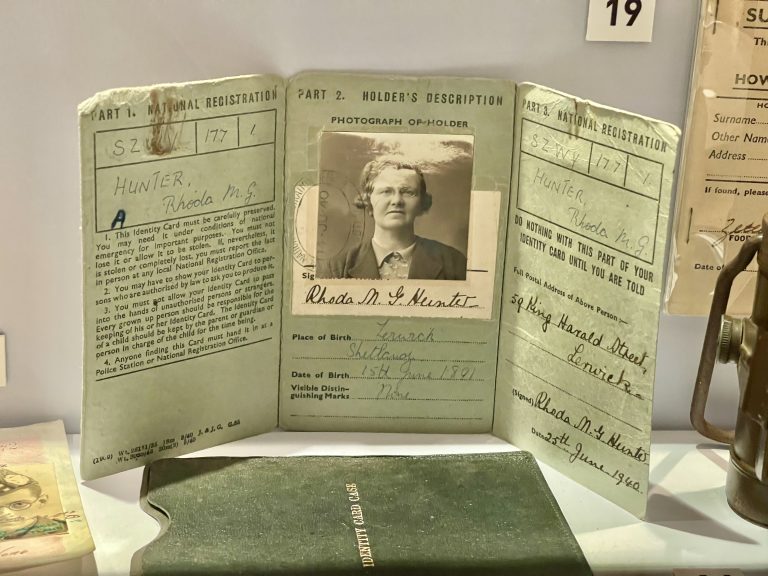 19
PART 1. NATIONAL REGISTRATION
SZWY 177 1
HUNTER,
Rhoda M.G
A
1. This Identity Card must be carefully preserved.
You may need it under conditions of national
emergency for important purposes. You must not
lose it or allow it to be stolen. If, nevertheless, it
is stolen or completely lost, you must report the fact
in person at any local National Registration Office.
2. You may have to show your Identity Card to per-
sons who are authorised by law to ask you to produce it.
3. You must not allow your Identity Card to pass
into the hands of unauthorised persons or strangers.
Every grown up person should be responsible for the
keeping of his or her Identity Card. The Identity Card
of a child should be kept by the parent or guardian or
person in charge of the child for the time being.
4. Anyone finding this Card must hand it in at a
Police Station or National Registration Office.
PART 2. HOLDER'S DESCRIPTION
PHOTOGRAPH OF HOLDER
Rhoda M. G Hunter
Place of Birth Lerwick
Shetland
Date of Birth 15th June 1891
Visible Distin-
guishing Marks None
PART 3. NATIONAL REGISTRATION
SZWY 177 1
HUNTER,
Rhoda M.G
DO NOTHING WITH THIS PART OF YOUR
IDENTITY CARD UNTIL YOU ARE TOLD
Full Postal Address of Above Person :—
59 King Harald Street,
Lerwick
(Signed) Rhoda M. G Hunter
Date 25th June 1940.
IDENTITY CARD CASE
SU
HOW
Surname
Other Nam
Address
If found, please
FOOD
Date of